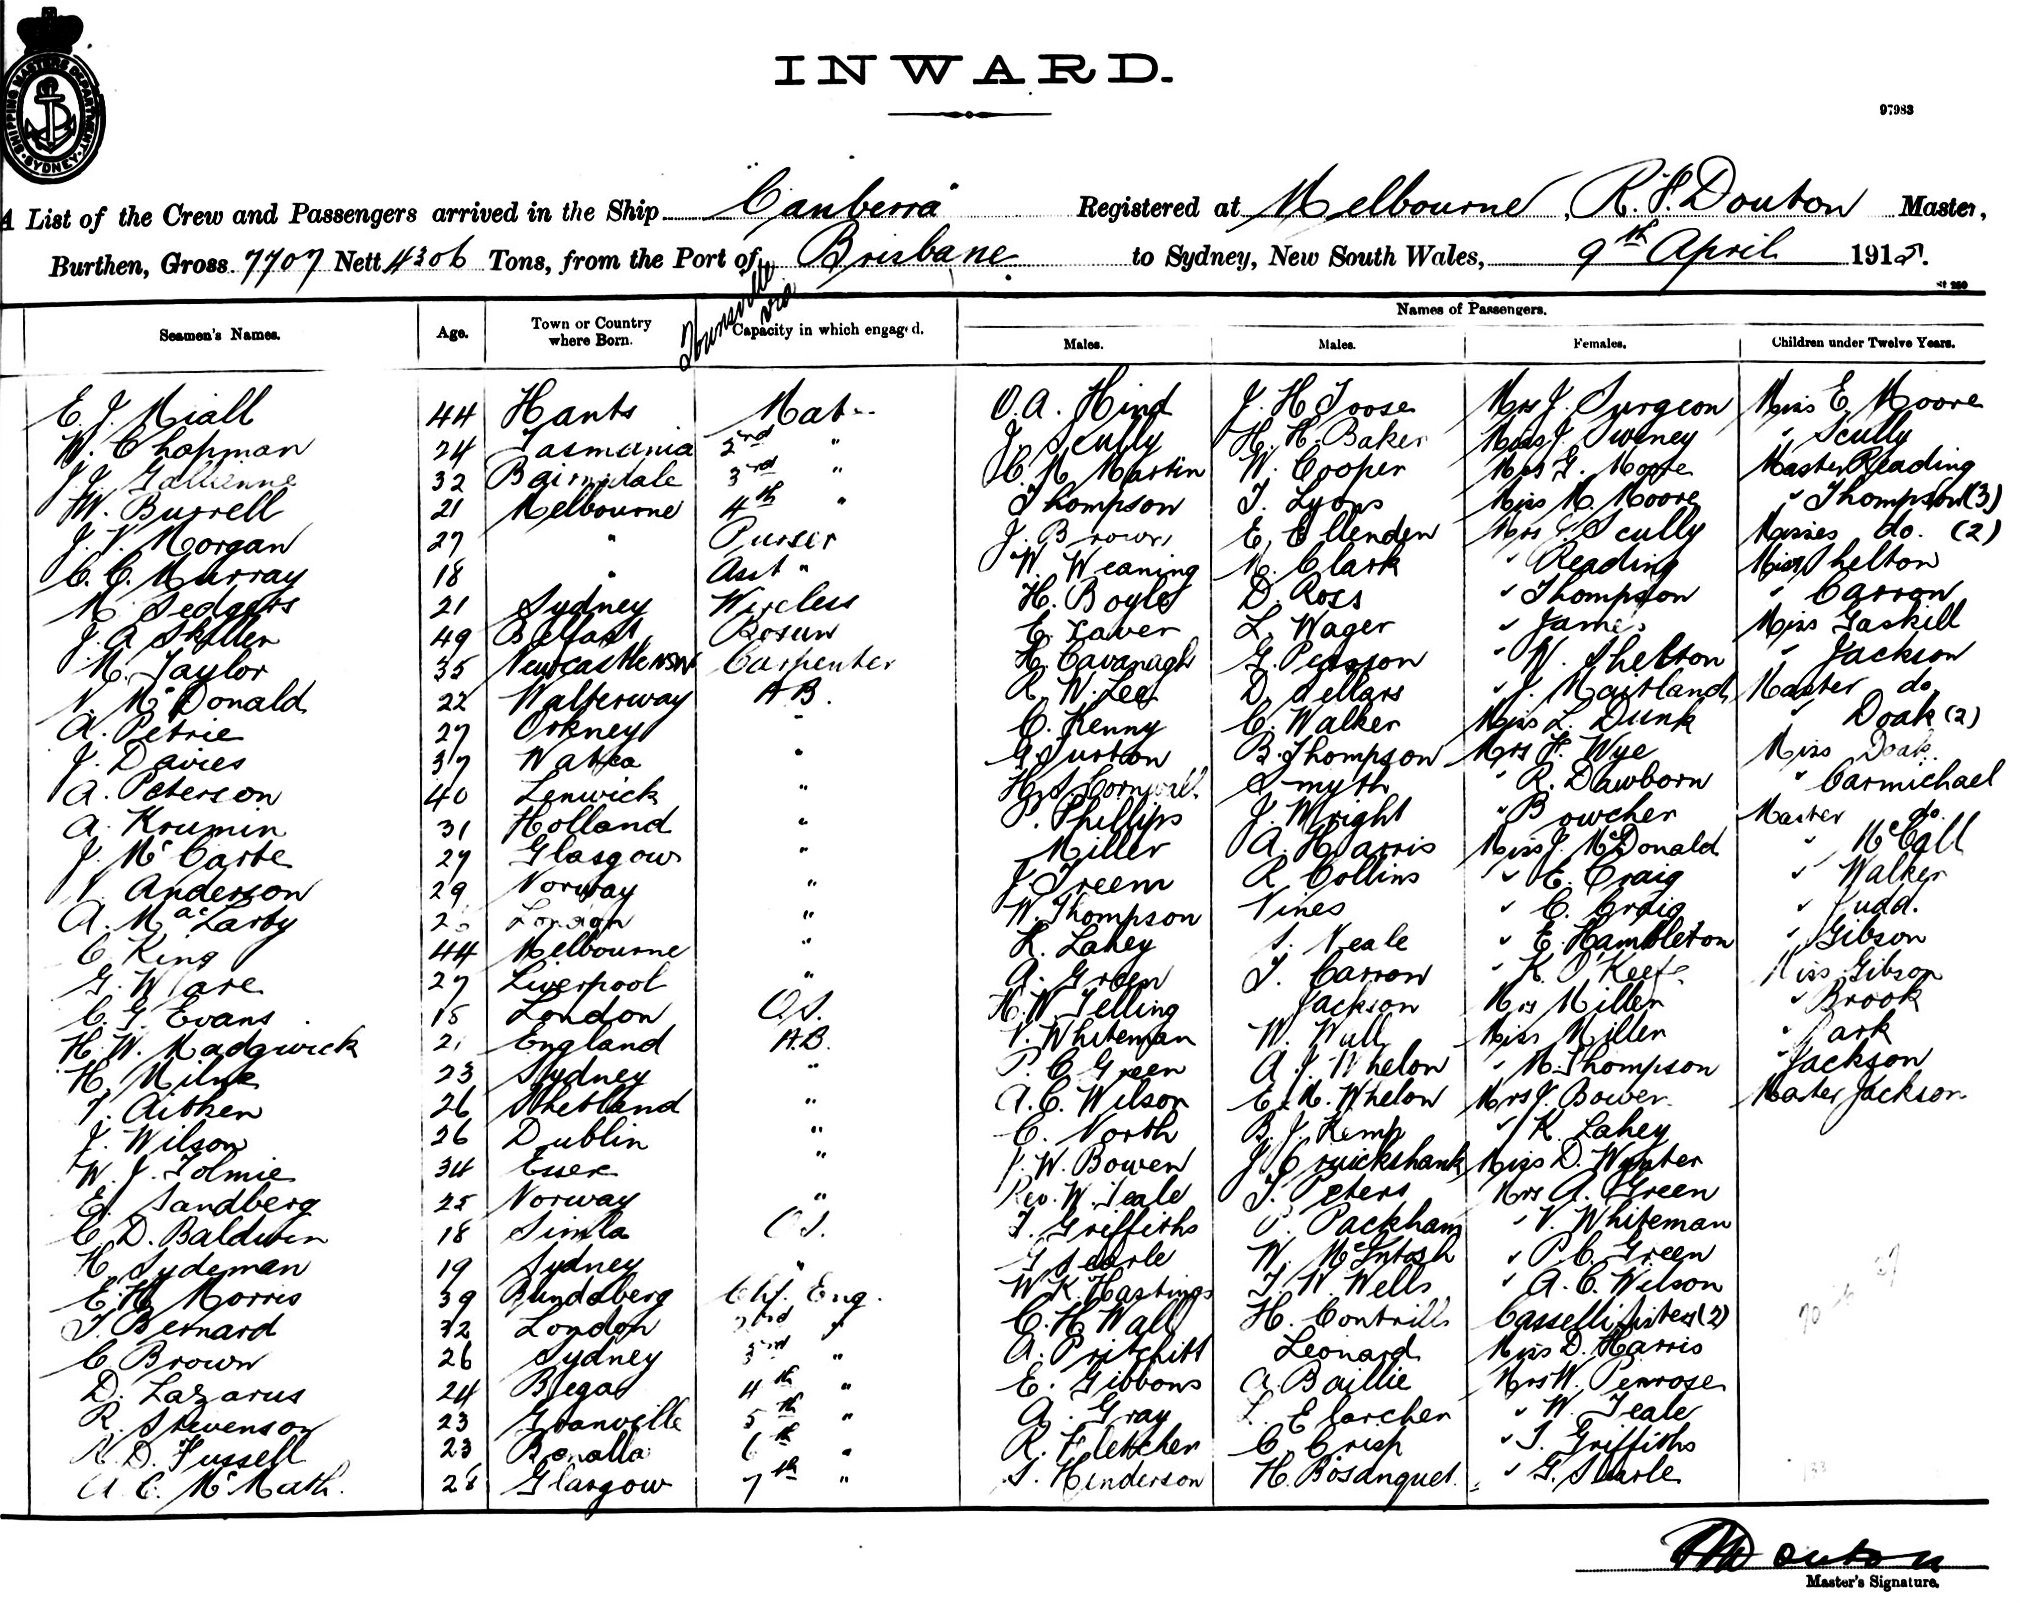 SHIPPING MASTERS DEPARTMENT. SYDNEY
INWARD.
97983
A List of the Crew and Passengers arrived in the Ship "Canberra" Registered at Melbourne, R. S. Douton Master,
Burthen, Gross 7707 Nett 4306 Tons, from the Port of Townsville via Brisbane. to Sydney, New South Wales, 9th April 1915.
Seamen's Names. Age. Town or Country where Born. Capacity in which engaged. Names of Passengers.
Males. Males. Females. Children under Twelve Years.
E. J. Niall 44 Hants Mate O. A. Hind J. H. Toose Mrs J. Surgeon Miss E Moore
W. Chapman 24 Tasmania 2nd " J. Scully H. H. Baker Miss J. Sweney " Scully
J. J. Gallienne 32 Bairnsdale 3rd " C. M. Martin W. Cooper Mrs G. Moore Master Reading
W. Burrell 21 Melbourne 4th " Thompson T. Lyons Miss M. Moore " Thompson (3)
J. V. Morgan 27 " Purser J. Brown E. Ellenden Mrs J. Scully Misses do. (2)
C. C. Murray 18 " Asst " W. Weaning M. Clark " Reading Miss Shelton
M. Sedgers 21 Sydney Wireless H. Boyle D. Ross " Thompson " Carron
J. A. Skillen 49 Belfast Bosun E. Laver L. Wager " James Miss Gaskill
M. Taylor 35 Newcastle NSW Carpenter H. Cavanagh G. Pearson " W. Shelton " Jackson
N. McDonald 22 Walterway A.B. R. W. Lee D. Sellars " J. Maitland Master do
A. Petrie 27 Orkney " C. Kenny C. Walker Miss L. Dunk " Doak (2)
J. Davies 37 " G. Surton B. Thompson Mrs H. Wye Miss Doak
A. Peterson 40 Lerwick " H. S. Cornwell Smyth " R. Dawborn " Carmichael
A. Krumin 31 Holland " P. Phillips J. Wright " Bowcher Master do.
J. McCarte 27 Glasgow " Miller A. Harris Miss J. McDonald " McCall
V. Anderson 29 Norway " J. Treem R Collins " E. Craig " Walker
A. MacLarty London " W. Thompson Vines " C. Craig " Judd.
C King 44 Melbourne " R. Lahey S. Neale " E. Hambleton " Gibson
G. Ware 27 Liverpool " A. Green T. Carron " K. O'Keefe Miss Gibson
C. G. Evans 15 London O.S. H. W. Telling Jackson Mrs Miller " Brook
H. W. Madgwick 21 England A.B. V. Whiteman W. Wull Miss Miller " Park
H. Milne 23 Sydney " P. C. Green A. J. Whelon " M. Thompson " Jackson
T. Aitken 26 Shetland " A. C. Wilson E. M. Whelon Mrs J. Bowen Master Jackson
J. Wilson 26 Dublin " C. North B. J. Kemp " K. Lahey
W. J. Tolmie 34 Essex " J. W. Bowen J Cruickshank Miss D. Wynter
E. Sandberg 25 Norway " Rev. W. Teale T. Peters Mrs A. Green
C. D. Baldwin 18 Simla O.S. T. Griffiths P. Packham " V. Whiteman
H Sydeman 19 Sydney " G Searle W. McIntosh " P. C. Green
E. H. Morris 39 Bundaberg Chf. Eng. W. K. Hastings T. W. Wells " A. C. Wilson
T. Bernard 32 London 2nd " C. H. Wall H. Contrill Casselli Sisters (2)
C Brown 26 Sydney 3rd " A. Pritchitt Leonard Miss D. Harris
D. Lazarus 24 Bega 4th " E. Gibbons A. Baillie Mrs W. Penrose
R. Stevenson 23 Granville 5th " A. Gray L. Elarcher " W. Teale
R. D. Fussell 23 Benalla 6th " R. Fletcher C. Crisp " T. Griffiths
A. C. McMath. 28 Glasgow 7th " S. Henderson H. Bosanquet. " G. Searle
Douton
Master's Signature.